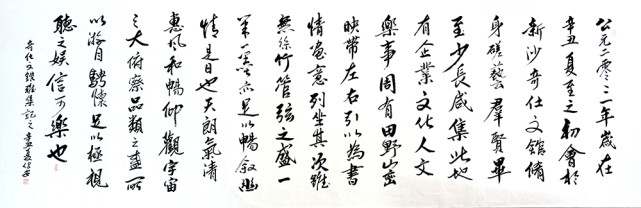 公元二零二一年歲在
辛丑夏至之初會於
新沙奇仕文館脩
身磋藝羣賢畢
至少長咸集此地
有企業文化人文
樂事周有田野山巒
映帶左右引以為書
情畫意列坐其次雖
無絲竹管弦之盛一
一亦足以暢叙幽
情是日也天朗氣清
惠風和暢仰觀宇宙
之大俯察品類之盛所
以游目騁懷足以極視
聽之娛信可樂也
奇仕文館雅集記之